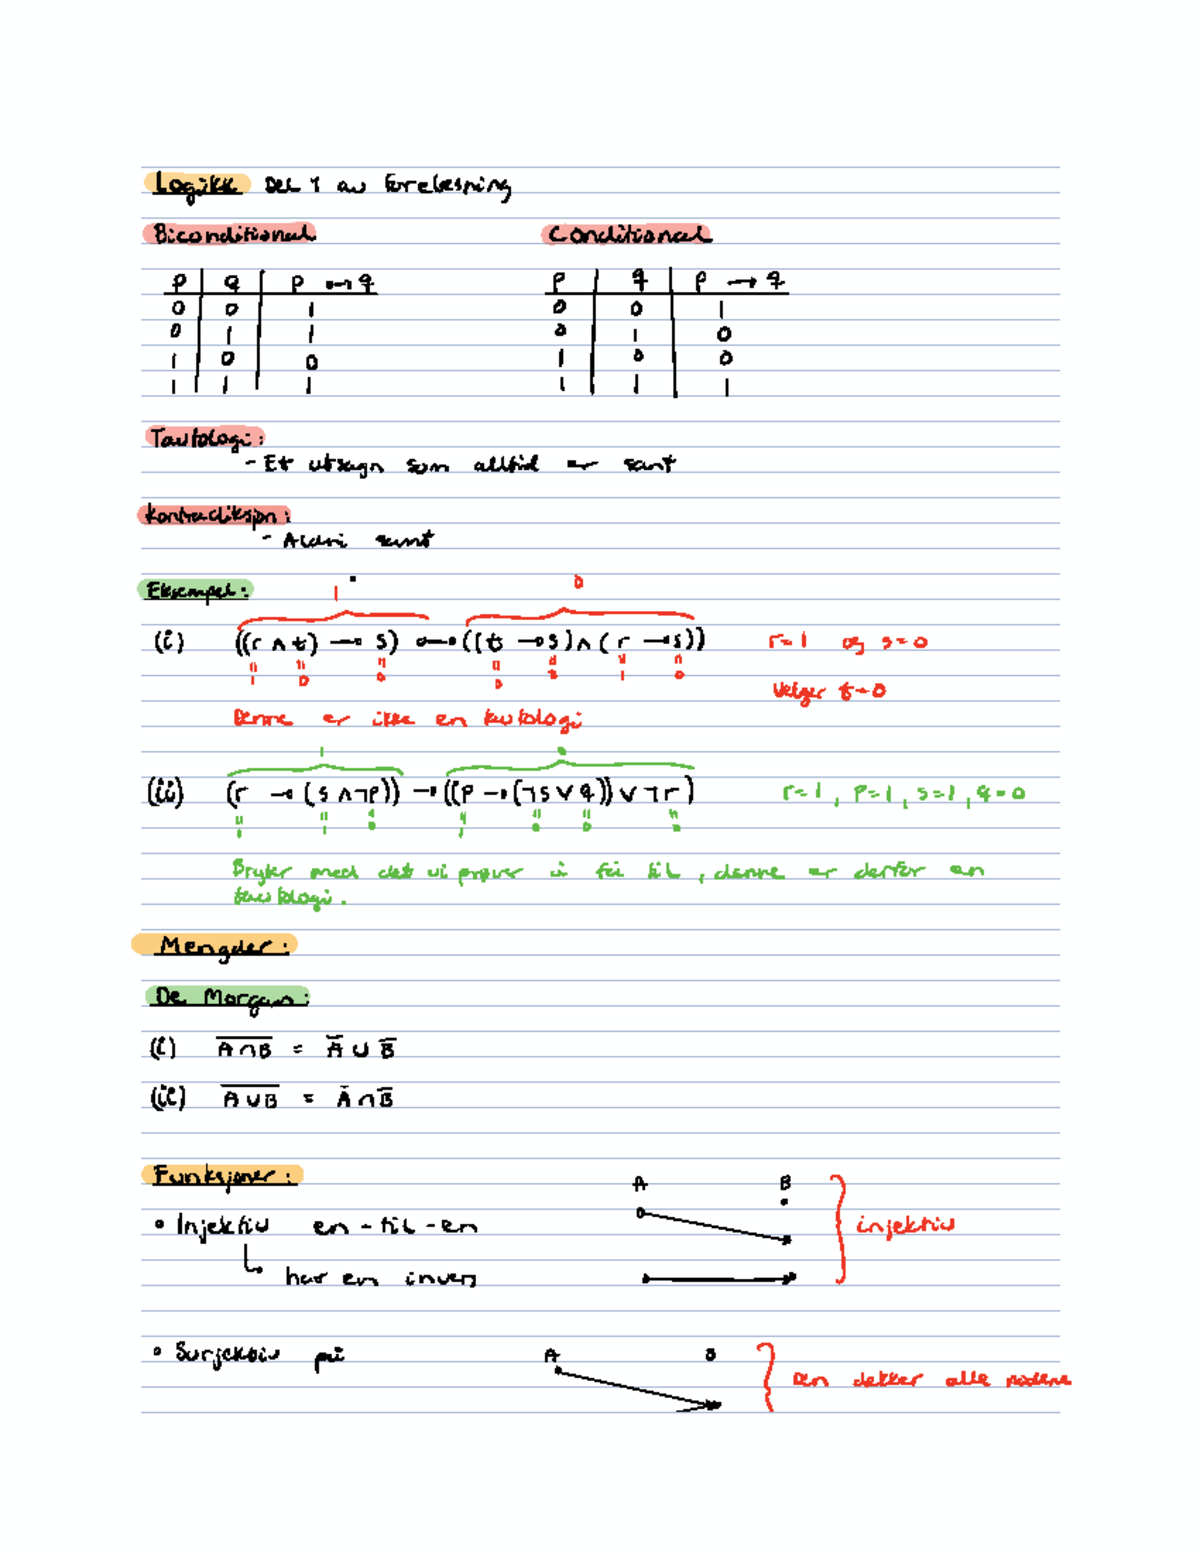 Logikk Del 1 av forelesning
Biconditional Conditional
p | q | p ↔ q p | q | p → q
0 | 0 | 1 0 | 0 | 1
0 | 1 | 1 0 | 1 | 0
1 | 0 | 0 1 | 0 | 0
1 | 1 | 1 1 | 1 | 1
Tautologi:
- Et utsagn som alltid er sant
Kontradiksjon:
- Aldri sant
Eksempel: 1 0
(i) ((r ∧ t) → s) ↔ ((t → s) ∧ (r → s)) r = 1 og s = 0
" " " " " " "
1 0 0 0 0 1 0
Velger t = 0
Denne er ikke en tautologi
1 0
(ii) (r → (s ∧ ¬p)) → ((p → (¬s ∨ q)) ∨ ¬r) r = 1, p = 1, s = 1, q = 0
" " " " " " "
1 1 0 1 0 0 0
Bryter med det vi prøver å få til, denne er derfor en
tautologi.
Mengder:
De Morgan:
(i) A̅∩̅B̅ = A̅ ∪ B̅
(ii) A̅∪̅B̅ = A̅ ∩ B̅
Funksjoner:
A B
• Injektiv en-til-en injektiv
har en invers
• Surjektiv på A B
Den dekker alle nodene